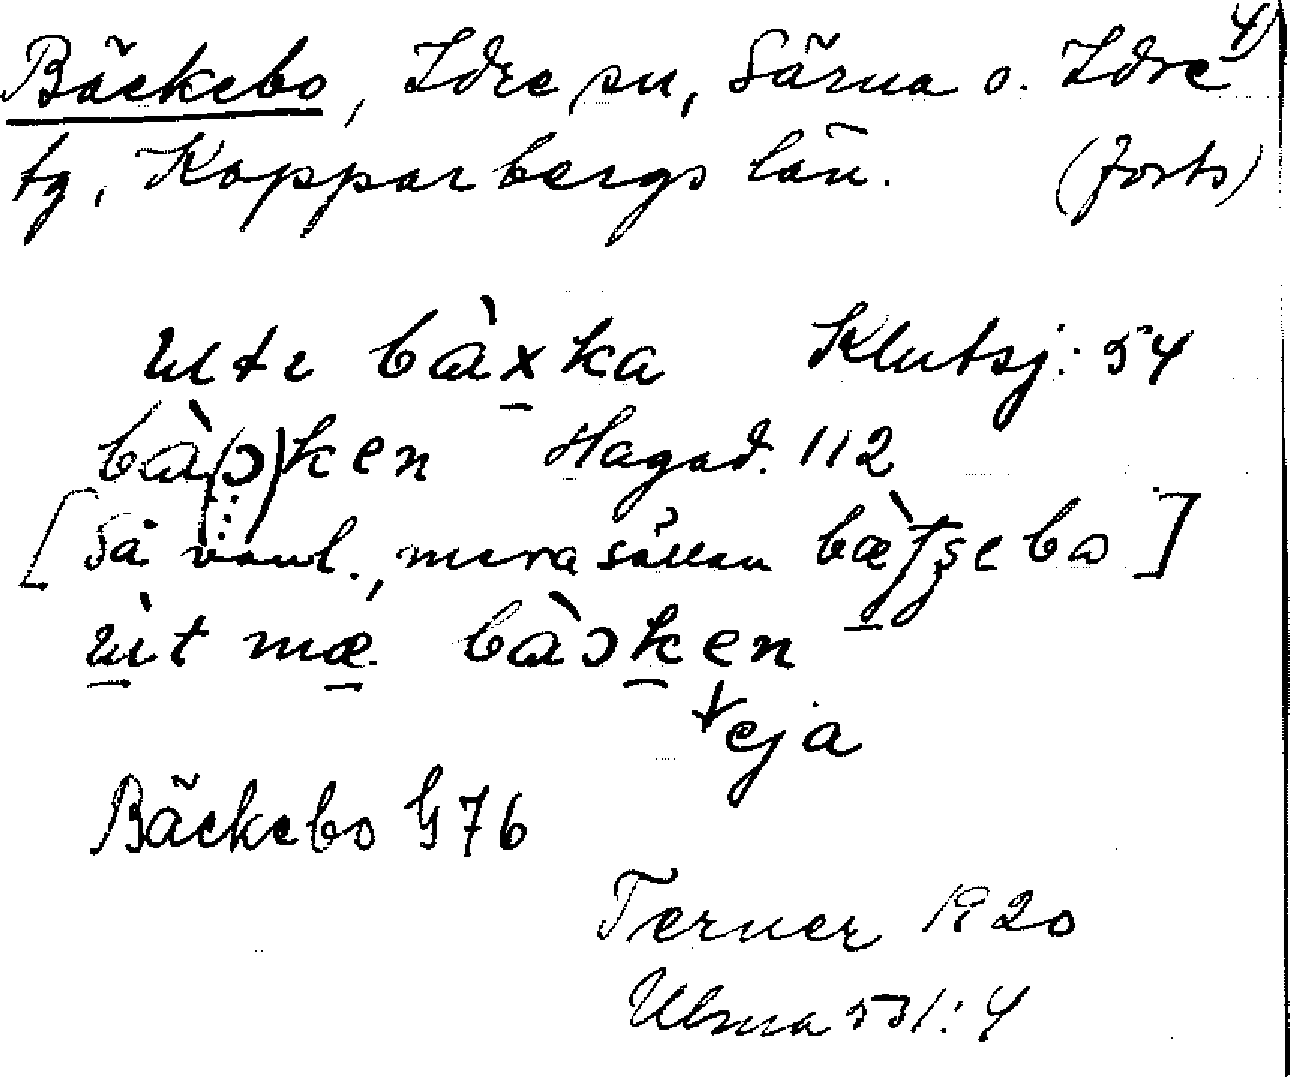 Bäckebo, Idre sn, Särna o. Idre 4)
tg, Kopparbergs län. (forts)
utɪ bàxka Klutsj: 54
bà(ɔ)ken Hagad. 112
[Så vanl., mera sällan bæ̀tʂebo]
ùt mæ bàɔken
eja
Bäckebo G 76
Terner 1920
Ulma 531:4